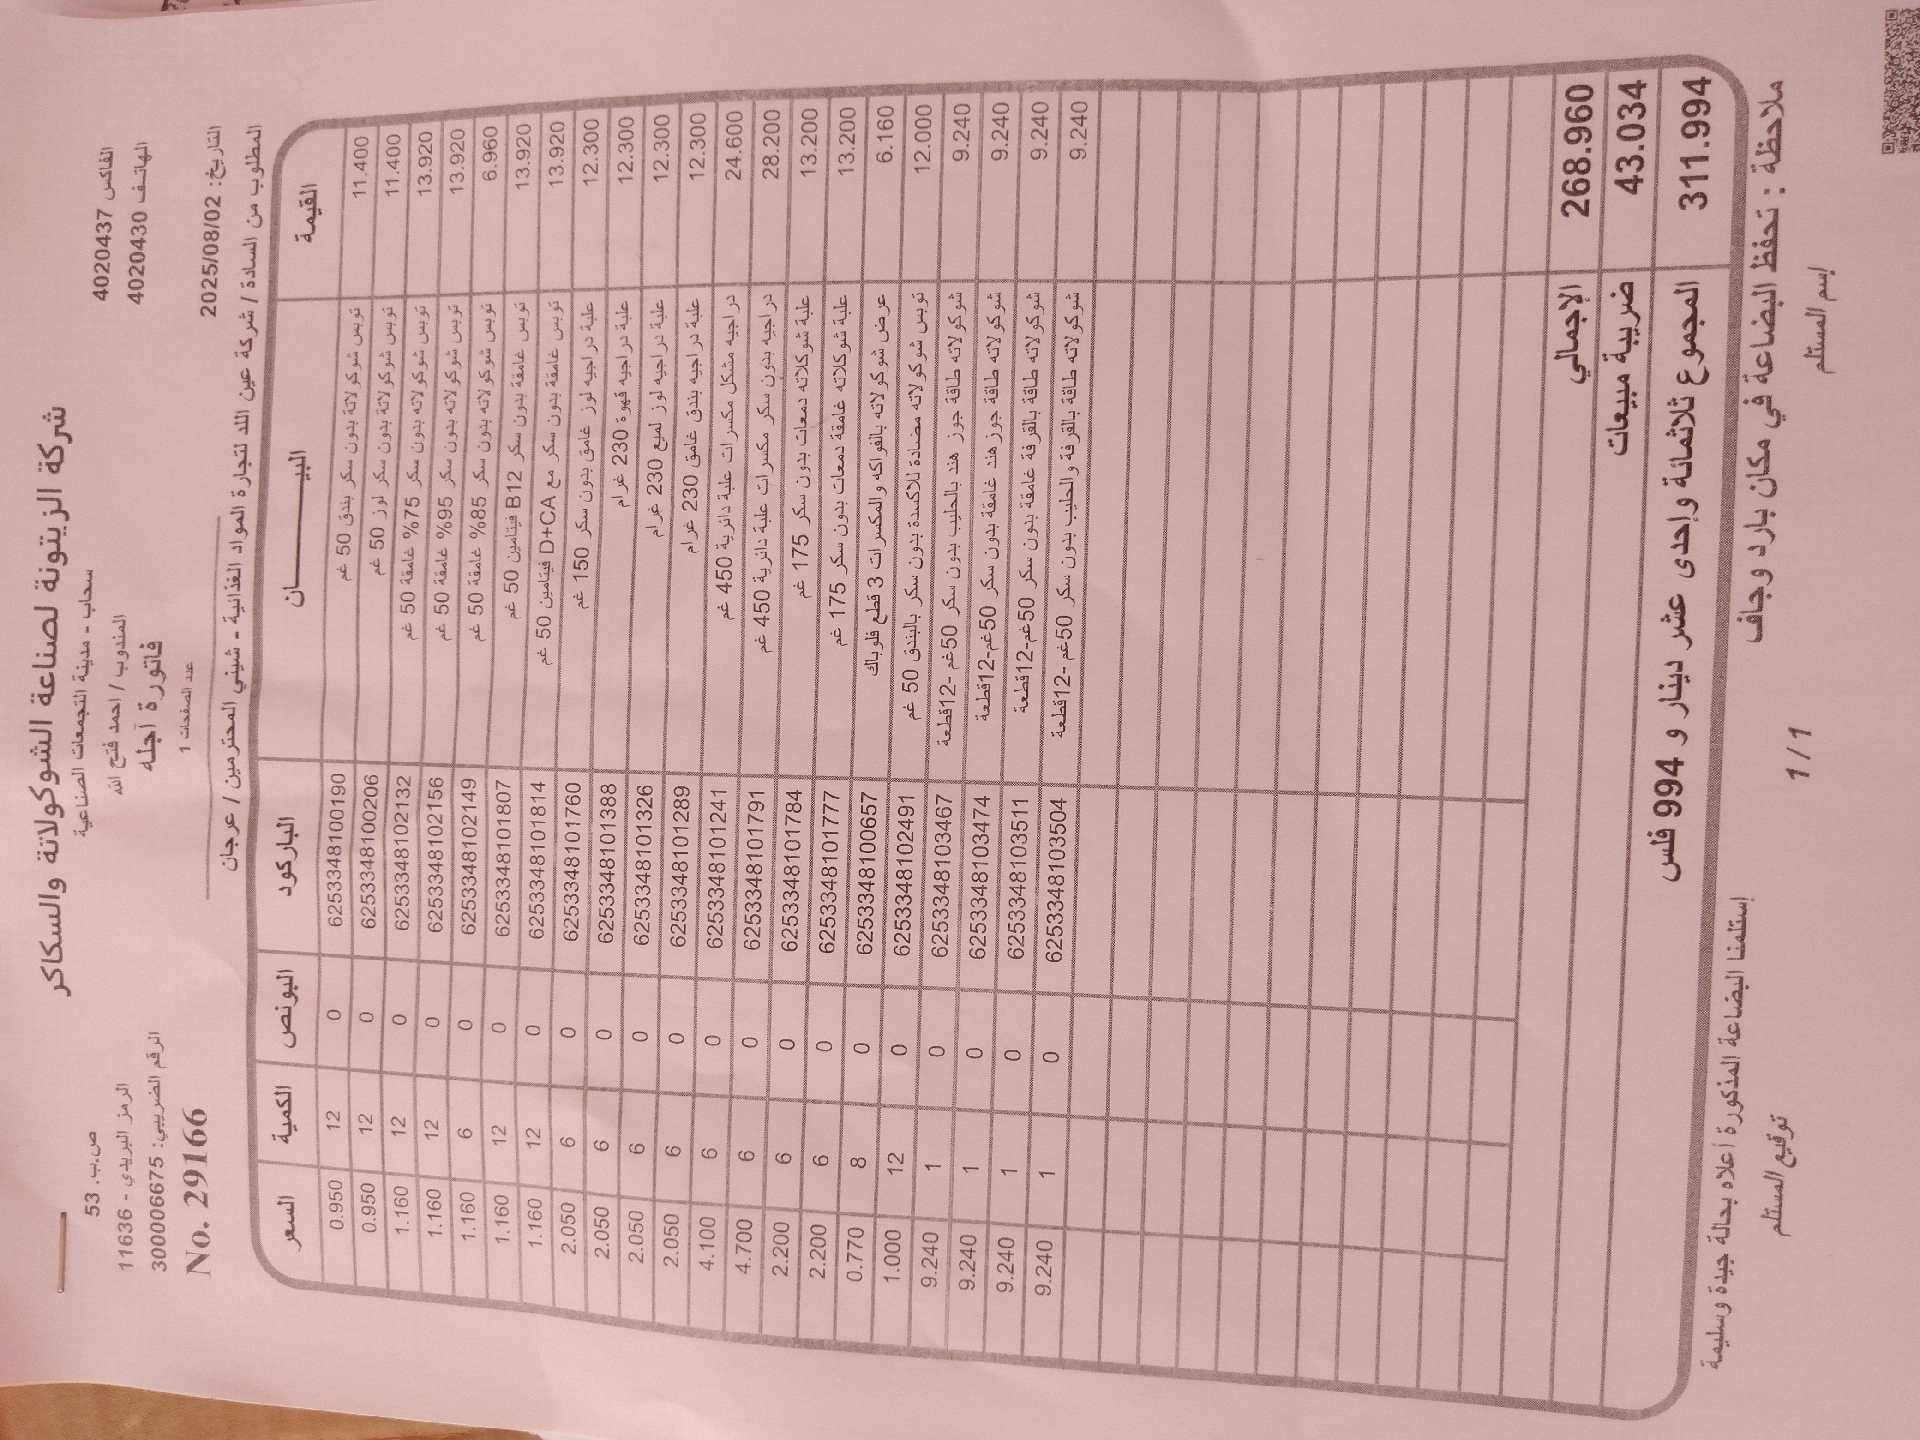 شركة الزيتونة لصناعة الشوكولاتة والسكاكر
سحاب - مدينة التجمعات الصناعية
الفاكس 4020437
ص.ب. 53
الهاتف 4020430
المندوب / احمد فتح الله
الرمز البريدي - 11636
فاتورة آجله
الرقم الضريبي: 300006675
عدد الصفحات 1
التاريخ: 2025/08/02
No. 29166
المطلوب من السادة / شركة عين اللد لتجارة المواد الغذائية - شيني المحترمين / عرجان
القيمة البيـــــان الباركود البونص الكمية السعر
11.400 توبس شوكولاتة بدون سكر بندق 50 غم 6253348100190 0 12 0.950
11.400 توبس شوكولاتة بدون سكر لوز 50 غم 6253348100206 0 12 0.950
13.920 توبس شوكولاته بدون سكر 75% غامقة 50 غم 6253348102132 0 12 1.160
13.920 توبس شوكولاته بدون سكر 95% غامقة 50 غم 6253348102156 0 12 1.160
6.960 توبس شوكولاته بدون سكر 85% غامقة 50 غم 6253348102149 0 6 1.160
13.920 توبس غامقة بدون سكر B12 فيتامين 50 غم 6253348101807 0 12 1.160
13.920 توبس غامقة بدون سكر مع D+CA فيتامين 50 غم 6253348101814 0 12 1.160
12.300 علبة دراجيه لوز غامق بدون سكر 150 غم 6253348101760 0 6 2.050
12.300 علبة دراجيه قهوة 230 غرام 6253348101388 0 6 2.050
12.300 علبة دراجيه لوز لميع 230 غرام 6253348101326 0 6 2.050
12.300 علبة دراجيه بندق غامق 230 غرام 6253348101289 0 6 2.050
24.600 دراجيه مشكل مكسرات علبة دائرية 450 غم 6253348101241 0 6 4.100
28.200 دراجيه بدون سكر مكسرات علبة دائرية 450 غم 6253348101791 0 6 4.700
13.200 علبة شوكلاته دمعات بدون سكر 175 غم 6253348101784 0 6 2.200
13.200 علبة شوكلاته غامقة دمعات بدون سكر 175 غم 6253348101777 0 6 2.200
6.160 عرض شوكولاته بالفواكه والمكسرات 3 قطع فلوباك 6253348100657 0 8 0.770
12.000 توبس شوكولاته مضادة للاكسدة بدون سكر بالبندق 50 غم 6253348102491 0 12 1.000
9.240 شوكولاته طاقة جوز هند بالحليب بدون سكر 50غم -12قطعة 6253348103467 0 1 9.240
9.240 شوكولاته طاقة جوز هند غامقة بدون سكر 50غم-12قطعة 6253348103474 0 1 9.240
9.240 شوكولاته طاقة بالقرفة غامقة بدون سكر 50غم-12قطعة 6253348103511 0 1 9.240
9.240 شوكولاته طاقة بالقرفة والحليب بدون سكر 50غم -12قطعة 6253348103504 0 1 9.240
268.960 الإجمالي
43.034 ضريبة مبيعات
311.994 المجموع ثلاثمائة وإحدى عشر دينار و 994 فلس
ملاحظة : تحفظ البضاعة في مكان بارد وجاف
إستلمنا البضاعة المذكورة أعلاه بحالة جيدة وسليمة
إسم المستلم
1/1
توقيع المستلم